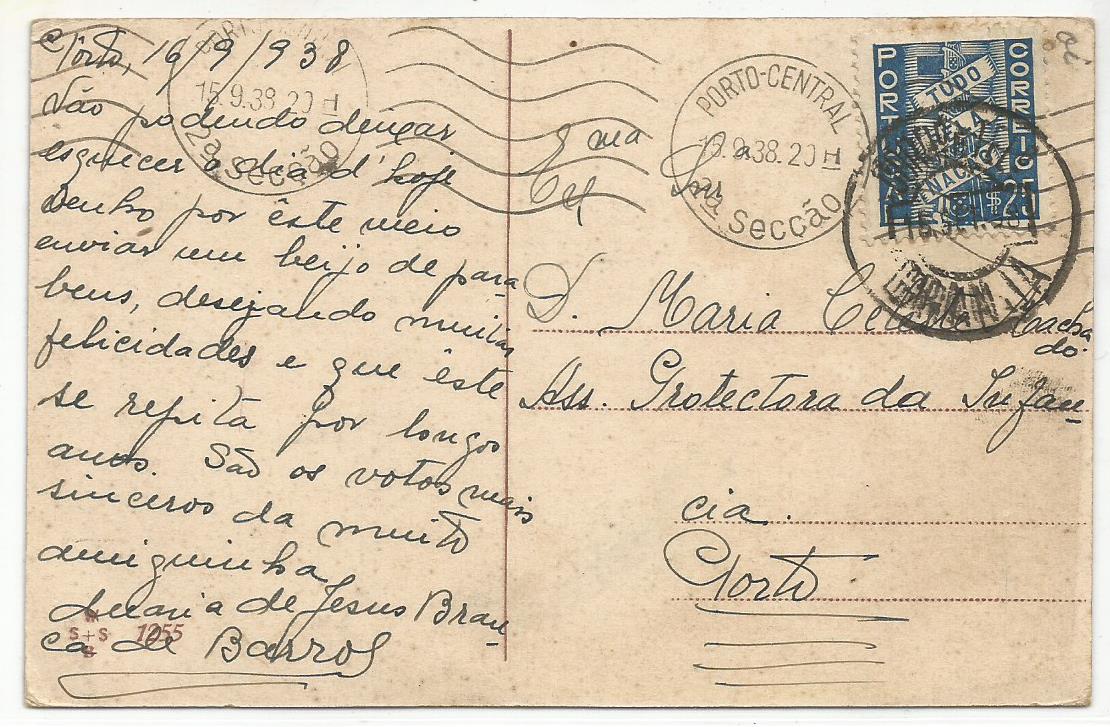 Pôrto, 16/9/938
Não podendo deixar
esquecer o dia d'hoje
venho por êste meio
enviar um beijo de para-
bens, desejando muitas
felicidades e que êste
se repita por longos
anos. São os votos mais
sinceros da muito
amiguinha
Maria de Jesus Bran-
ca de Barros
S+S 1055
15.9.38.20H
2a Secção
PORTO-CENTRAL
15.9.38.20H
2a Secção
TUDO
PELA
NAÇÃO
CORREIO
$25
Exma
Sra
D. Maria Macha
do.
Ass. Protectora da Infan-
cia.
Porto